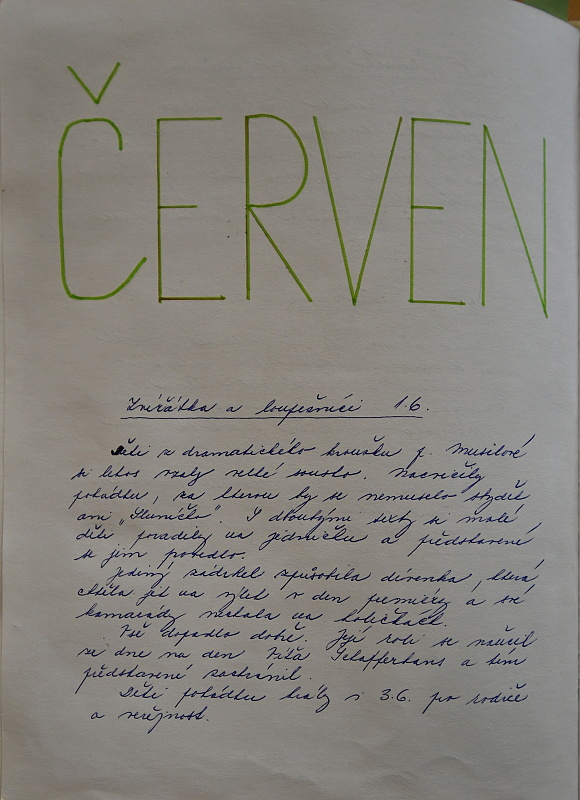 ČERVEN
Zvířátka a loupežníci 1.6.
Děti z dramatického kroužku p. Musilové
si letos vzaly velké sousto. Nacvičily
pohádku, za kterou by se nemuselo stydět
ani „Sluníčko". S dlouhými texty si malé
děti poradily na jedničku a představení
se jim povedlo.
Jediný zádrhel způsobila děvenka, která
chtěla jet na výlet v den premiéry a své
kamarády nechala na holičkách.
Vše dopadlo dobře. Její roli se naučil
ze dne na den Víťa Schafferhans a tím
představení zachránil.
Děti pohádku hrály i 3.6. pro rodiče
a veřejnost.